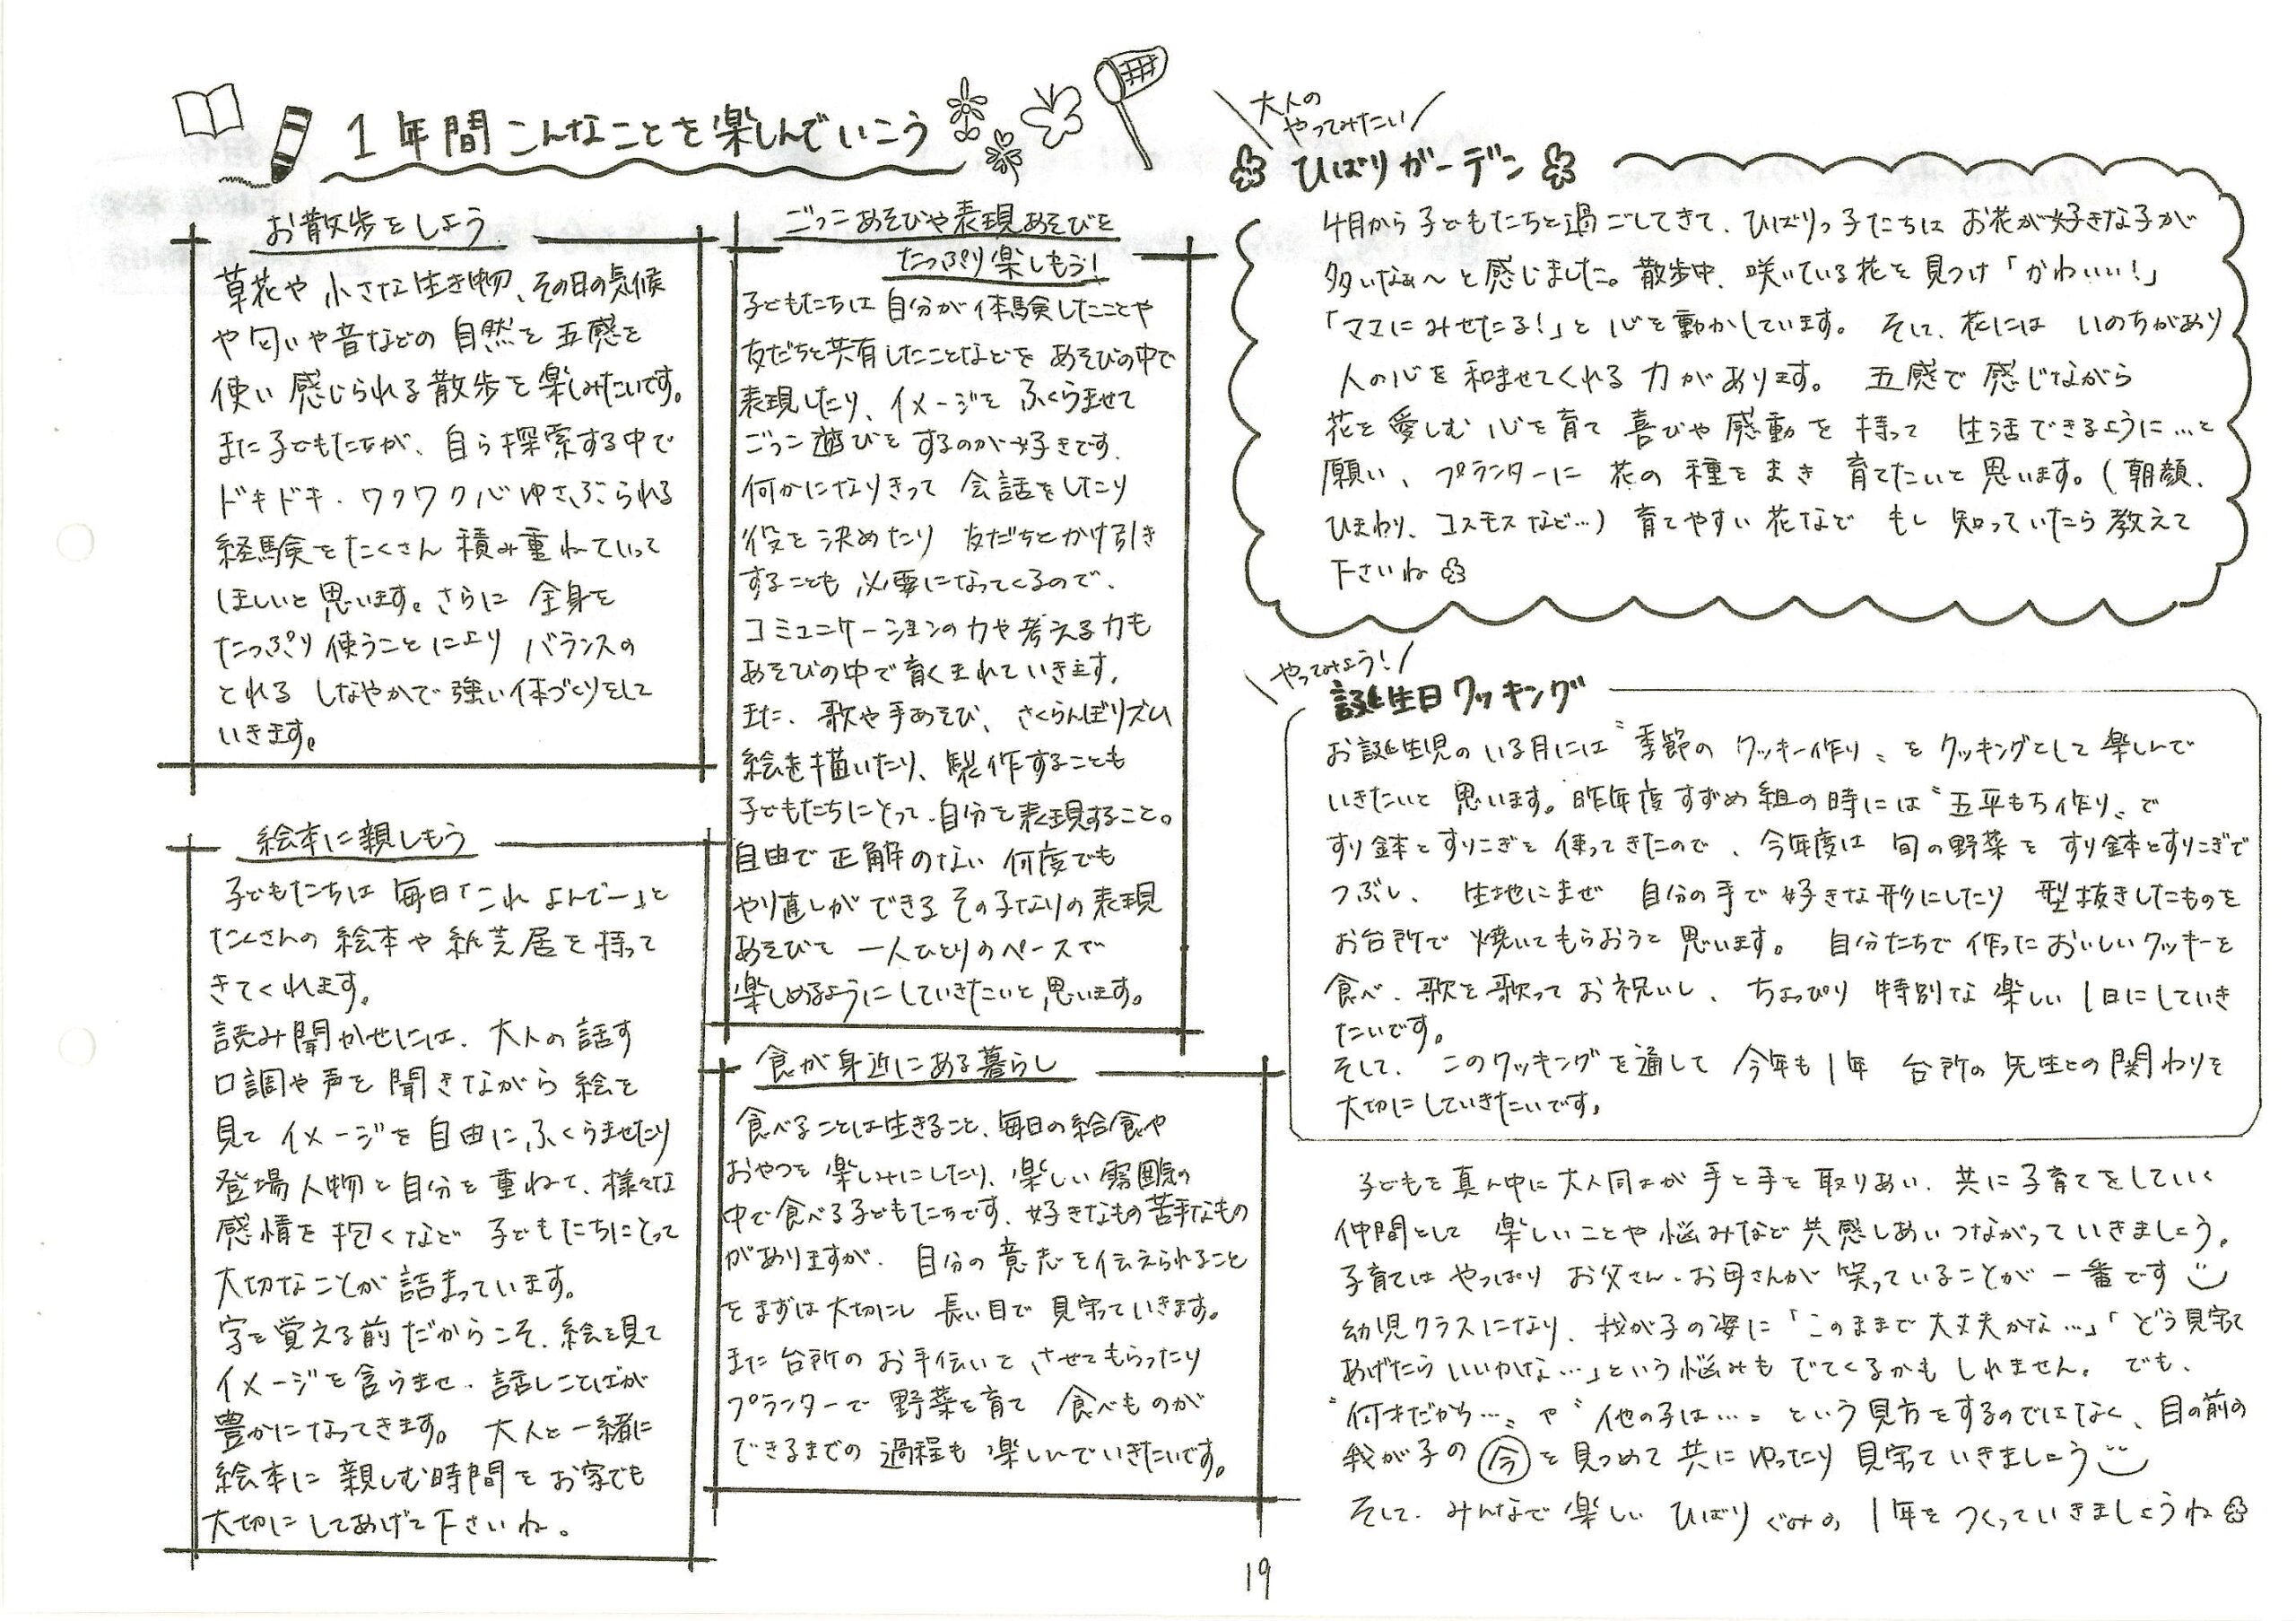 1年間こんなことを楽しんでいこう
お散歩をしよう
草花や小さな生き物、その日の気候
や匂いや音などの自然を五感を
使い感じられる散歩を楽しみたいです。
また子どもたちが、自ら探索する中で
ドキドキ・ワクワク心ゆさぶられる
経験をたくさん積み重ねていって
ほしいと思います。さらに全身を
たっぷり使うことによりバランスの
とれるしなやかで強い体づくりをして
いきます。
絵本に親しもう
子どもたちは毎日「これよんでー」と
たくさんの絵本や紙芝居を持って
きてくれます。
読み聞かせには、大人の話す
口調や声を聞きながら絵を
見てイメージを自由にふくらませたり
登場人物と自分を重ねて、様々な
感情を抱くなど子どもたちにとって
大切なことが詰まっています。
字を覚える前だからこそ、絵を見て
イメージを含らませ、話しことばが
豊かになってきます。大人と一緒に
絵本に親しむ時間をお家でも
大切にしてあげて下さいね。
ごっこあそびや表現あそびを
たっぷり楽しもう!
子どもたちは自分が体験したことや
友だちと共有したことなどをあそびの中で
表現したり、イメージをふくらませて
ごっこ遊びをするのが好きです。
何かになりきって会話をしたり
役を決めたり友だちとかけ引き
することも必要になってくるので、
コミュニケーションの力や考える力も
あそびの中で育くまれていきます。
また、歌や手あそび、さくらんぼリズム
絵を描いたり、製作することも
子どもたちにとって、自分を表現すること。
自由で正解のない何度でも
やり直しができるその子なりの表現
あそびを一人ひとりのペースで
楽しめるようにしていきたいと思います。
食が身近にある暮らし
食べることは生きること、毎日の給食や
おやつを楽しみにしたり、楽しい雰囲気の
中で食べる子どもたちです。好きなもの苦手なもの
がありますが、自分の意志を伝えられること
をまずは大切にし長い目で見守っていきます。
また台所のお手伝いをさせてもらったり
プランターで野菜を育て食べものが
できるまでの過程も楽しんでいきたいです。
大人の
やってみたい
ひばりガーデン
4月から子どもたちと過ごしてきて、ひばりっ子たちはお花が好きな子が
多いなぁ〜と感じました。散歩中、咲いている花を見つけ「かわいい!」
「ママにみせたる!」と心を動かしています。そして、花にはいのちがあり
人の心を和ませてくれる力があります。五感で感じながら
花を愛しむ心を育て喜びや感動を持って生活できるように…と
願い、プランターに花の種をまき育てたいと思います。(朝顔、
ひまわり、コスモスなど…)育てやすい花などもし知っていたら教えて
下さいね
やってみよう!
誕生日クッキング
お誕生児のいる月には〝季節のクッキー作り〟をクッキングとして楽しんで
いきたいと思います。昨年度すずめ組の時には〝五平もち作り〟で
すり鉢とすりこぎを使ってきたので、今年度は旬の野菜をすり鉢とすりこぎで
つぶし、生地にまぜ自分の手で好きな形にしたり型抜きしたものを
お台所で焼いてもらおうと思います。自分たちで作ったおいしいクッキーを
食べ、歌を歌ってお祝いし、ちょっぴり特別な楽しい1日にしていき
たいです。
そして、このクッキングを通して今年も1年台所の先生との関わりを
大切にしていきたいです。
子どもを真ん中に大人同士が手と手を取りあい、共に子育てをしていく
仲間として楽しいことや悩みなど共感しあいつながっていきましょう。
子育てはやっぱりお父さん・お母さんが笑っていることが一番です
幼児クラスになり、我が子の姿に「このままで大丈夫かな…」「どう見守って
あげたらいいかな…」という悩みもでてくるかもしれません。でも、
〝何才だから…〟や〝他の子は…〟という見方をするのではなく、目の前の
我が子の今を見つめて共にゆったり見守っていきましょう
そして、みんなで楽しいひばりぐみの1年をつくっていきましょうね
19